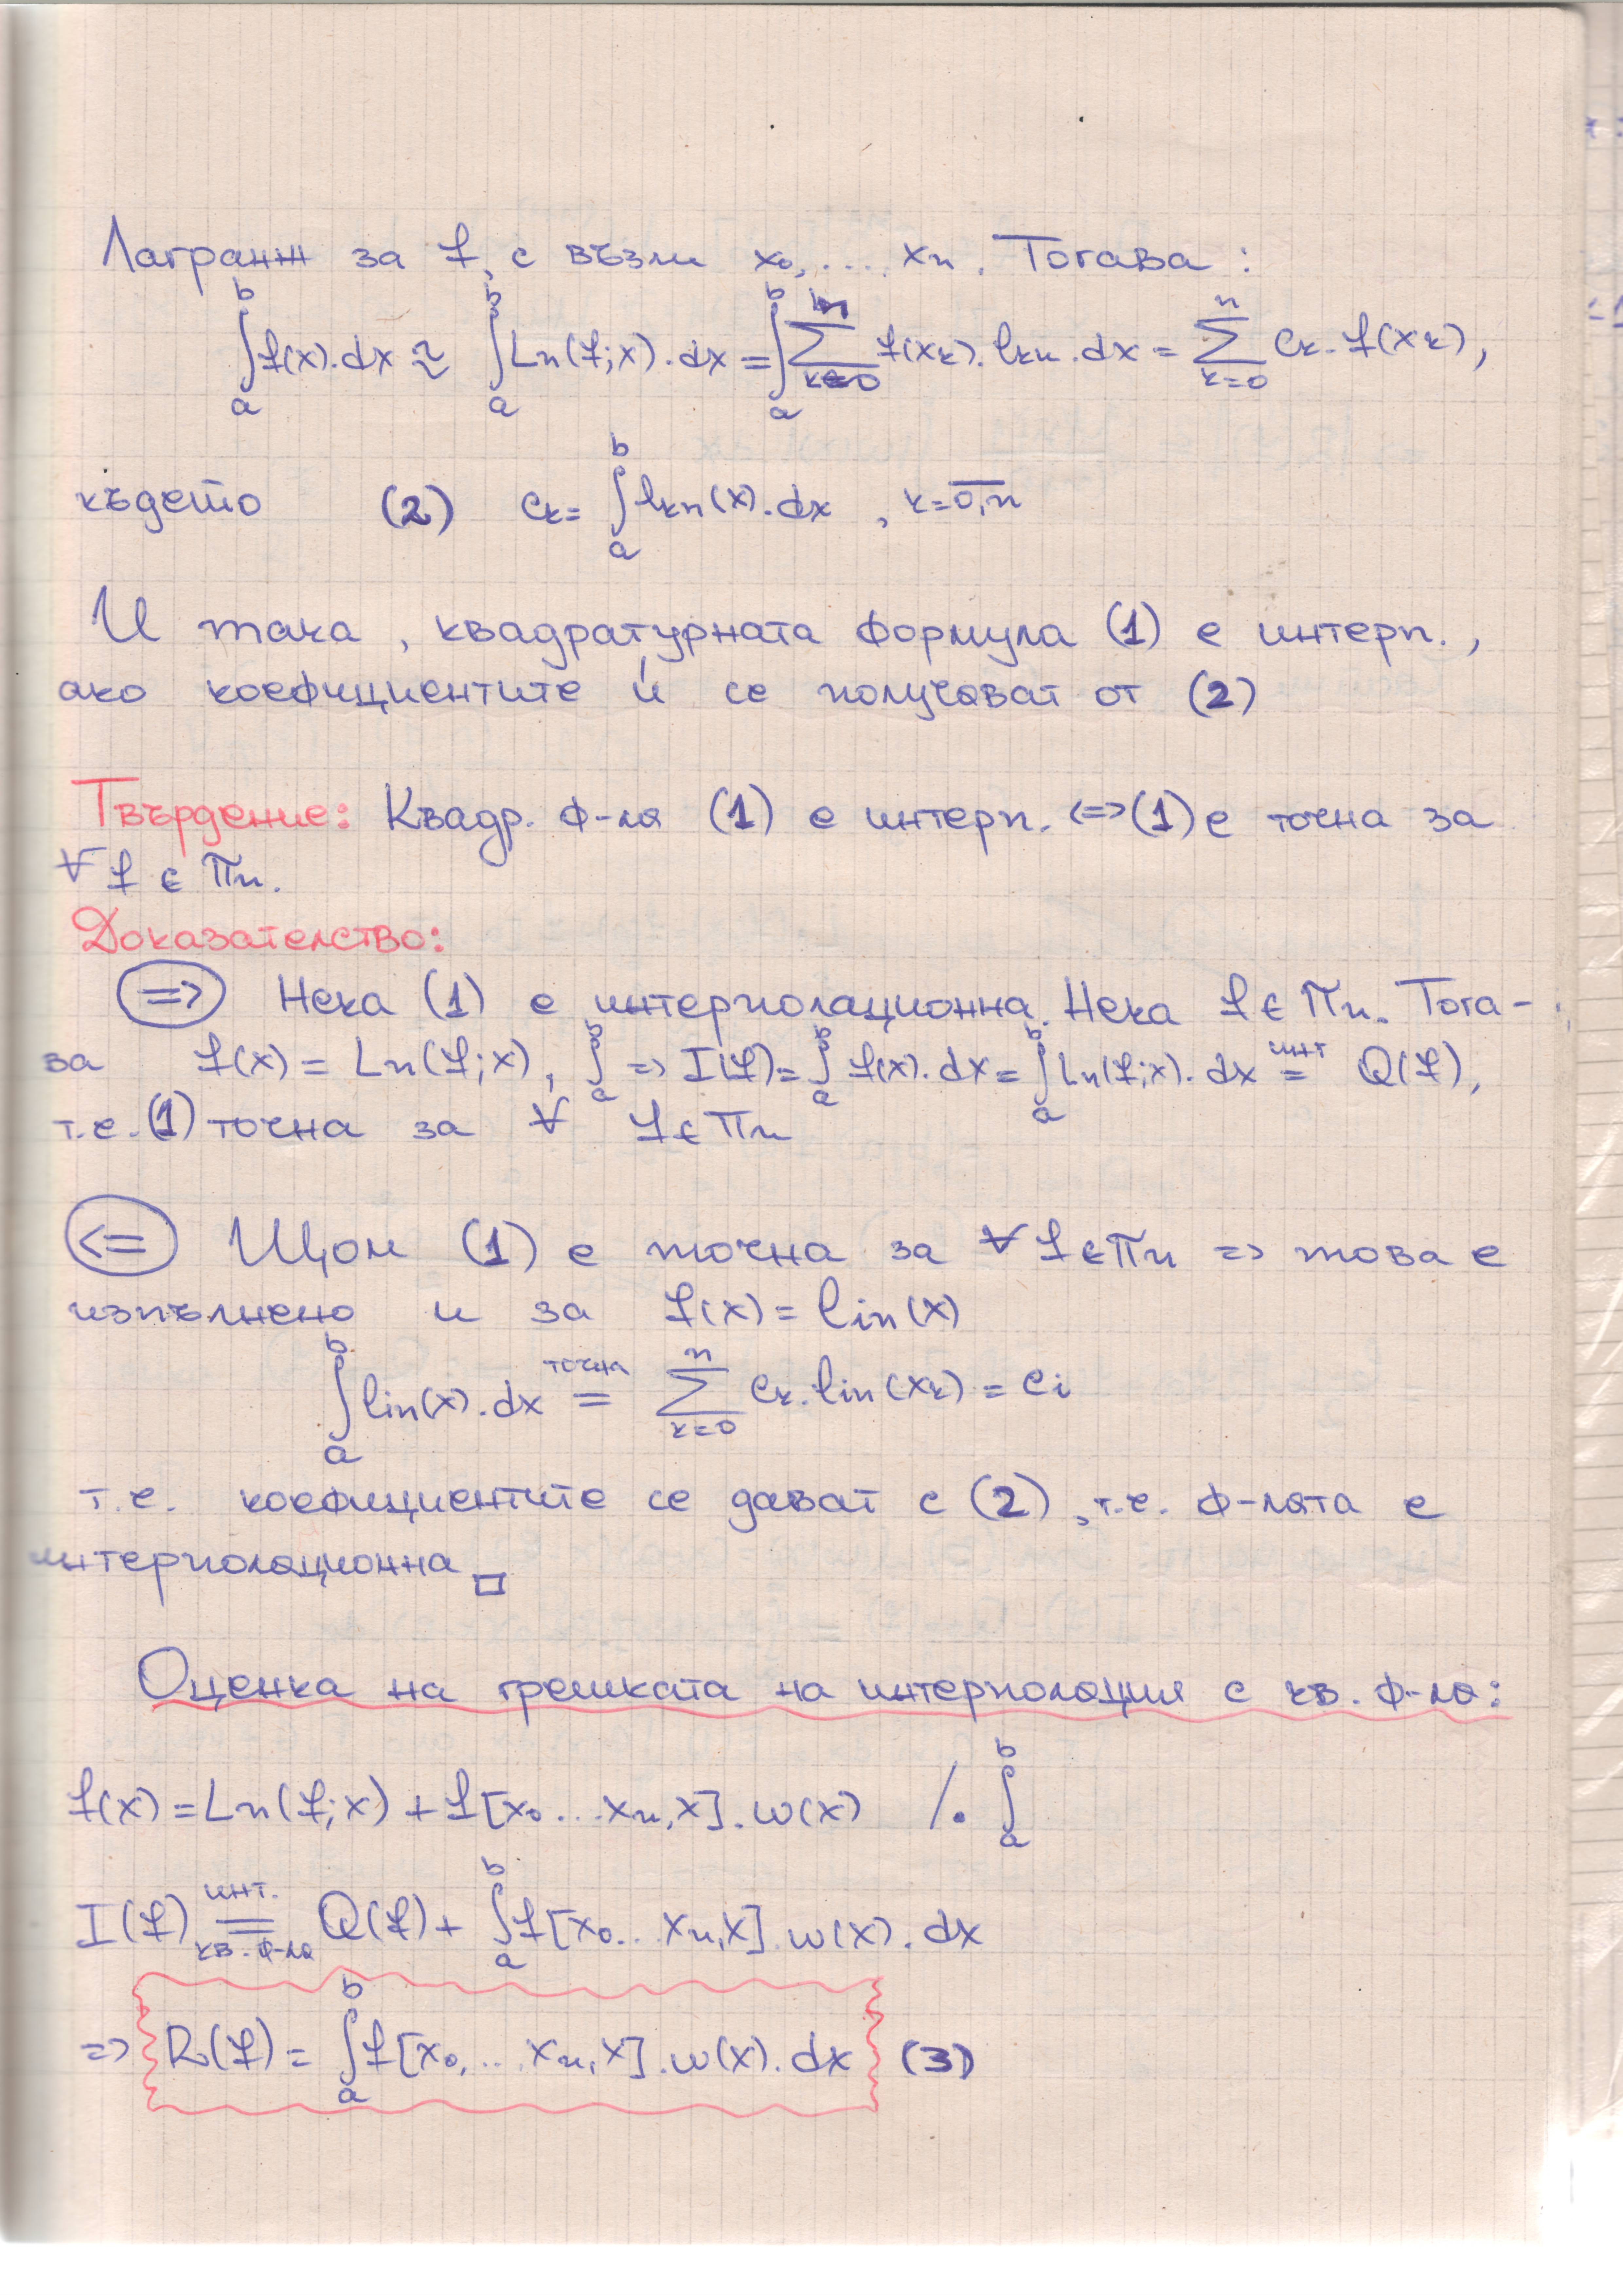 Лагранж за f, с възли x₀, .... xₙ. Тогава :
∫ₐᵇ f(x).dx ≈ ∫ₐᵇ Ln(f;x).dx = ∫ₐᵇ ∑ₖ₌₀ⁿ f(xₖ).lₖₙ.dx = ∑ₖ₌₀ⁿ cₖ.f(xₖ),
където (2) cₖ = ∫ₐᵇ lₖₙ(x).dx , k=0,n
И така , квадратурната формула (1) е интерп. ,
ако коефициентите ѝ се получават от (2)
Твърдение: Квадр. ф-ла (1) е интерп. <=> (1) е точна за
∀ f ∈ πn.
Доказателство:
=> Нека (1) е интерполационна. Нека f ∈ πn. Тога-
ва f(x) = Ln(f;x), ∫ₐᵇ => I(f) = ∫ₐᵇ f(x).dx = ∫ₐᵇ Ln(f;x).dx =(инт) Q(f),
т.е. (1) точна за ∀ f ∈ πn
<= Щом (1) е точна за ∀ f ∈ πn => това е
изпълнено и за f(x) = lin(x)
∫ₐᵇ lin(x).dx =(точна) ∑ₖ₌₀ⁿ cₖ.lin(xₖ) = ci
т.е. коефициентите се дават с (2) , т.е. ф-лата е
интерполационна □
Оценка на грешката на интерполация с кв. ф-ла:
f(x) = Ln(f;x) + f[x₀...xₙ,x].w(x) /. ∫ₐᵇ
I(f) =(инт. кв. ф-ла) Q(f) + ∫ₐᵇ f[x₀...xₙ,x].w(x).dx
=> R(f) = ∫ₐᵇ f[x₀,...xₙ,x].w(x).dx (3)